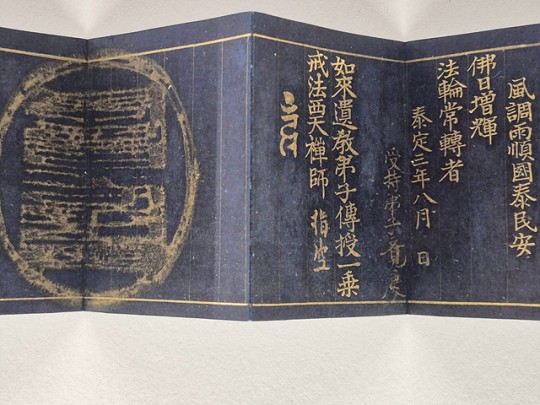 風調雨順國泰民安
佛日增輝
法輪常轉者
泰定三年八月 日
受持弟子覺慶
如來遺教弟子傳授一乗
戒法西天禪師 指空